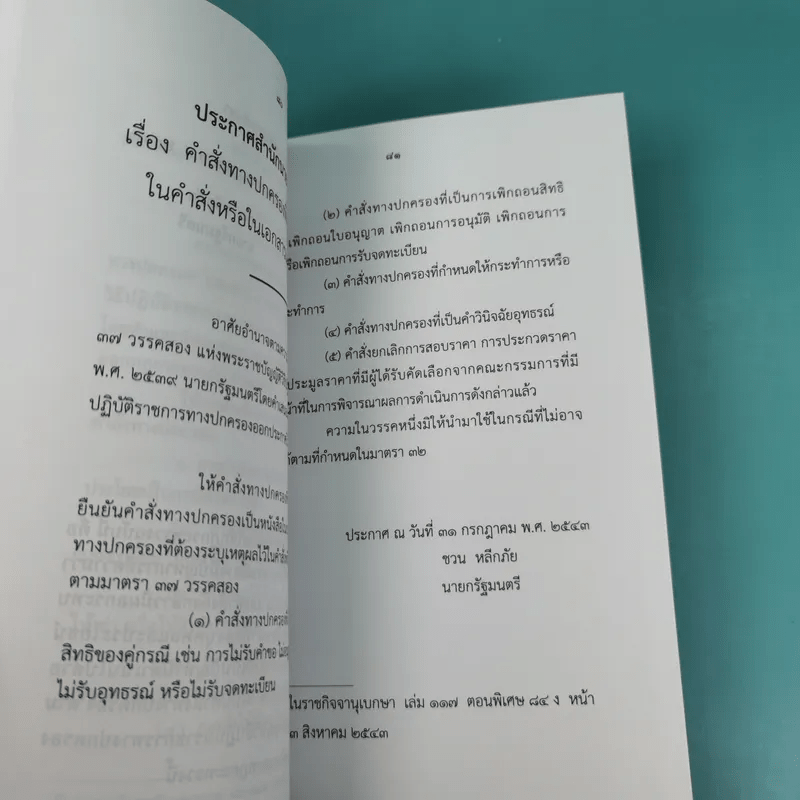 ๘๐
ประกาศสำนัก
เรื่อง คำสั่งทางปกครอง
ในคำสั่งหรือในเอกสาร
อาศัยอำนาจตาม
๓๗ วรรคสอง แห่งพระราชบัญญัติ
พ.ศ. ๒๕๓๙ นายกรัฐมนตรีโดย
ปฏิบัติราชการทางปกครองออกประกาศ
ให้คำสั่งทางปกครอง
ยืนยันคำสั่งทางปกครองเป็นหนังสือ
ทางปกครองที่ต้องระบุเหตุผลไว้ในคำสั่ง
ตามมาตรา ๓๗ วรรคสอง
(๑) คำสั่งทางปกครองที่
สิทธิของคู่กรณี เช่น การไม่รับคำขอ
ไม่รับอุทธรณ์ หรือไม่รับจดทะเบียน
๘๑
(๒) คำสั่งทางปกครองที่เป็นการเพิกถอนสิทธิ
เพิกถอนใบอนุญาต เพิกถอนการอนุมัติ เพิกถอนการ
รือเพิกถอนการรับจดทะเบียน
(๓) คำสั่งทางปกครองที่กำหนดให้กระทำการหรือ
ะทำการ
(๔) คำสั่งทางปกครองที่เป็นคำวินิจฉัยอุทธรณ์
(๕) คำสั่งยกเลิกการสอบราคา การประกวดราคา
ประมูลราคาที่มีผู้ได้รับคัดเลือกจากคณะกรรมการที่มี
น้าที่ในการพิจารณาผลการดำเนินการดังกล่าวแล้ว
ความในวรรคหนึ่งมิให้นำมาใช้ในกรณีที่ไม่อาจ
ด้ตามที่กำหนดในมาตรา ๓๒
ประกาศ ณ วันที่ ๓๑ กรกฎาคม พ.ศ. ๒๕๔๓
ชวน หลีกภัย
นายกรัฐมนตรี
ในราชกิจจานุเบกษา เล่ม ๑๑๗ ตอนพิเศษ ๘๔ ง หน้า
๓ สิงหาคม ๒๕๔๓